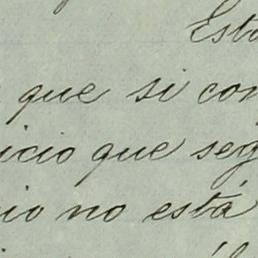 Esto
que si con
icio que seg
io no está